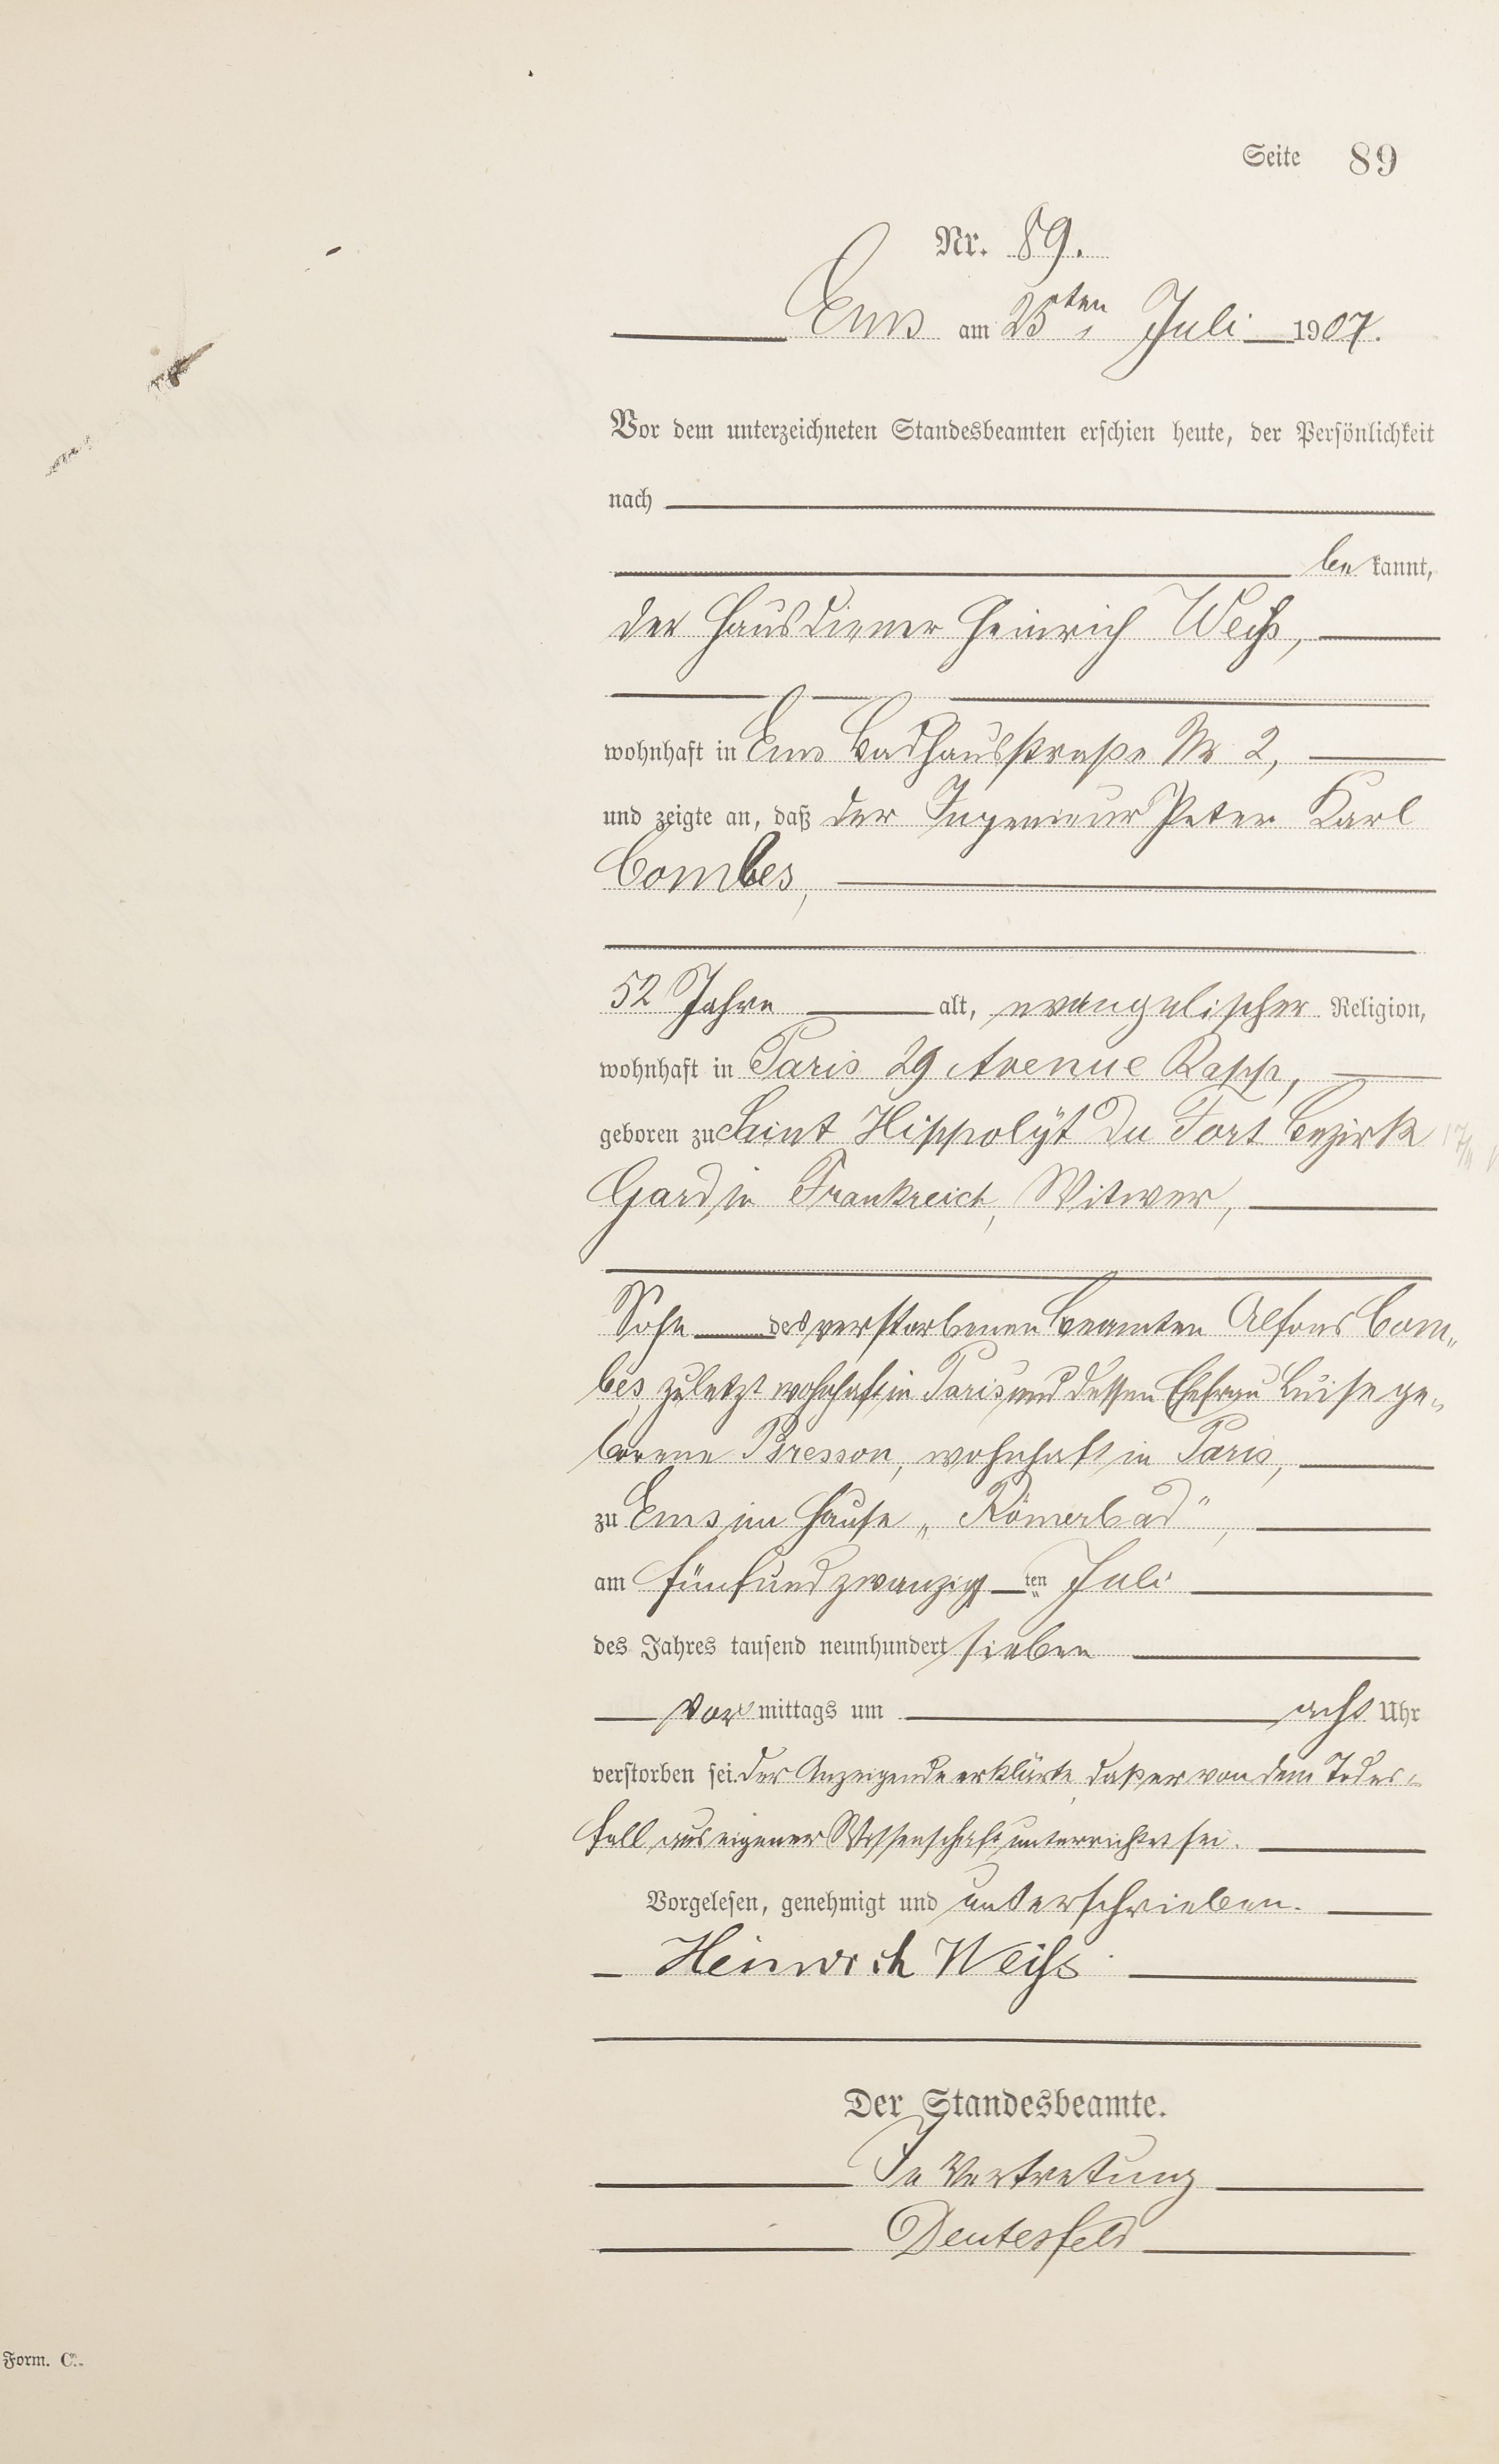 Seite 89
Nr. 89.
Ems am 25ten Juli 1907.
Vor dem unterzeichneten Standesbeamten erschien heute, der Persönlichkeit
nach
be kannt,
der Hausdiener Heinrich Weiß,
wohnhaft in Ems Badhausstraße Nr 2,
und zeigte an, daß der Ingenieur Peter Karl
Combes,
52 Jahre alt, evangelischer Religion,
wohnhaft in Paris 29 Avenue Rapp,
geboren zu Saint Hippolÿt du Fort Bezirk
Gard in Frankreich, Witwer,
Sohn des verstorbenen Beamten Alfons Com„
bes, zuletzt wohnhaft in Paris und dessen Ehefrau Luise ge„
borene Bresson, wohnhaft in Paris,
zu Ems im Hause „Römerbad",
am fünfundzwanzig ten Juli
des Jahres tausend neunhundert sieben
Vor mittags um acht Uhr
verstorben sei. Der Anzeigende erklärte, daß er von dem Todes„
fall aus eigener Wissenschaft unterrichtet sei.
Vorgelesen, genehmigt und unterschrieben.
Heinrich Weiß
Der Standesbeamte.
In Vertretung
Deutesfeld
Form. C.